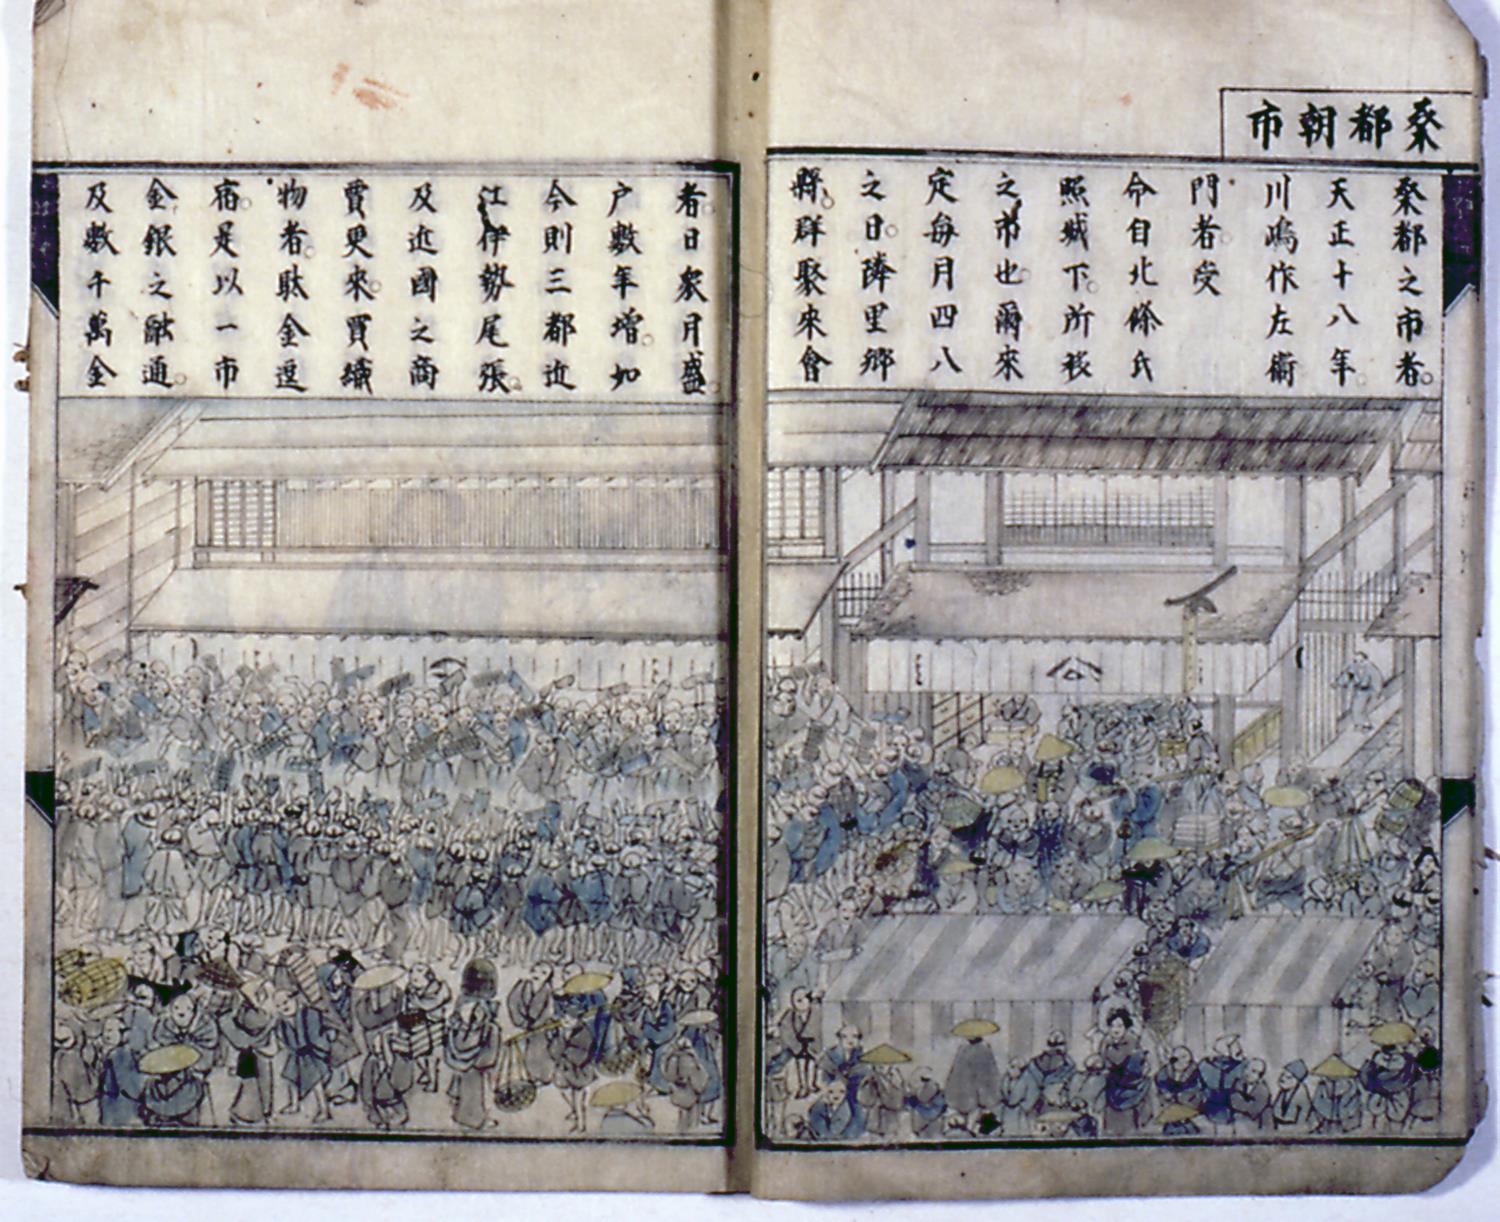 桒都朝市
桒都之市者。
天正十八年。
川嶋作左衞
門者。受
命自北條氏
照城下。所移
之市也。爾來
定毎月四八
之日。隣里郷
縣。群聚來會
者。日衆月盛。
戸數年増。如
今則三都近
江伊勢尾張。
及近國之商
賈更來。買織
物者。駄金逗
宿。是以一市
金銀之融通。
及數千萬金